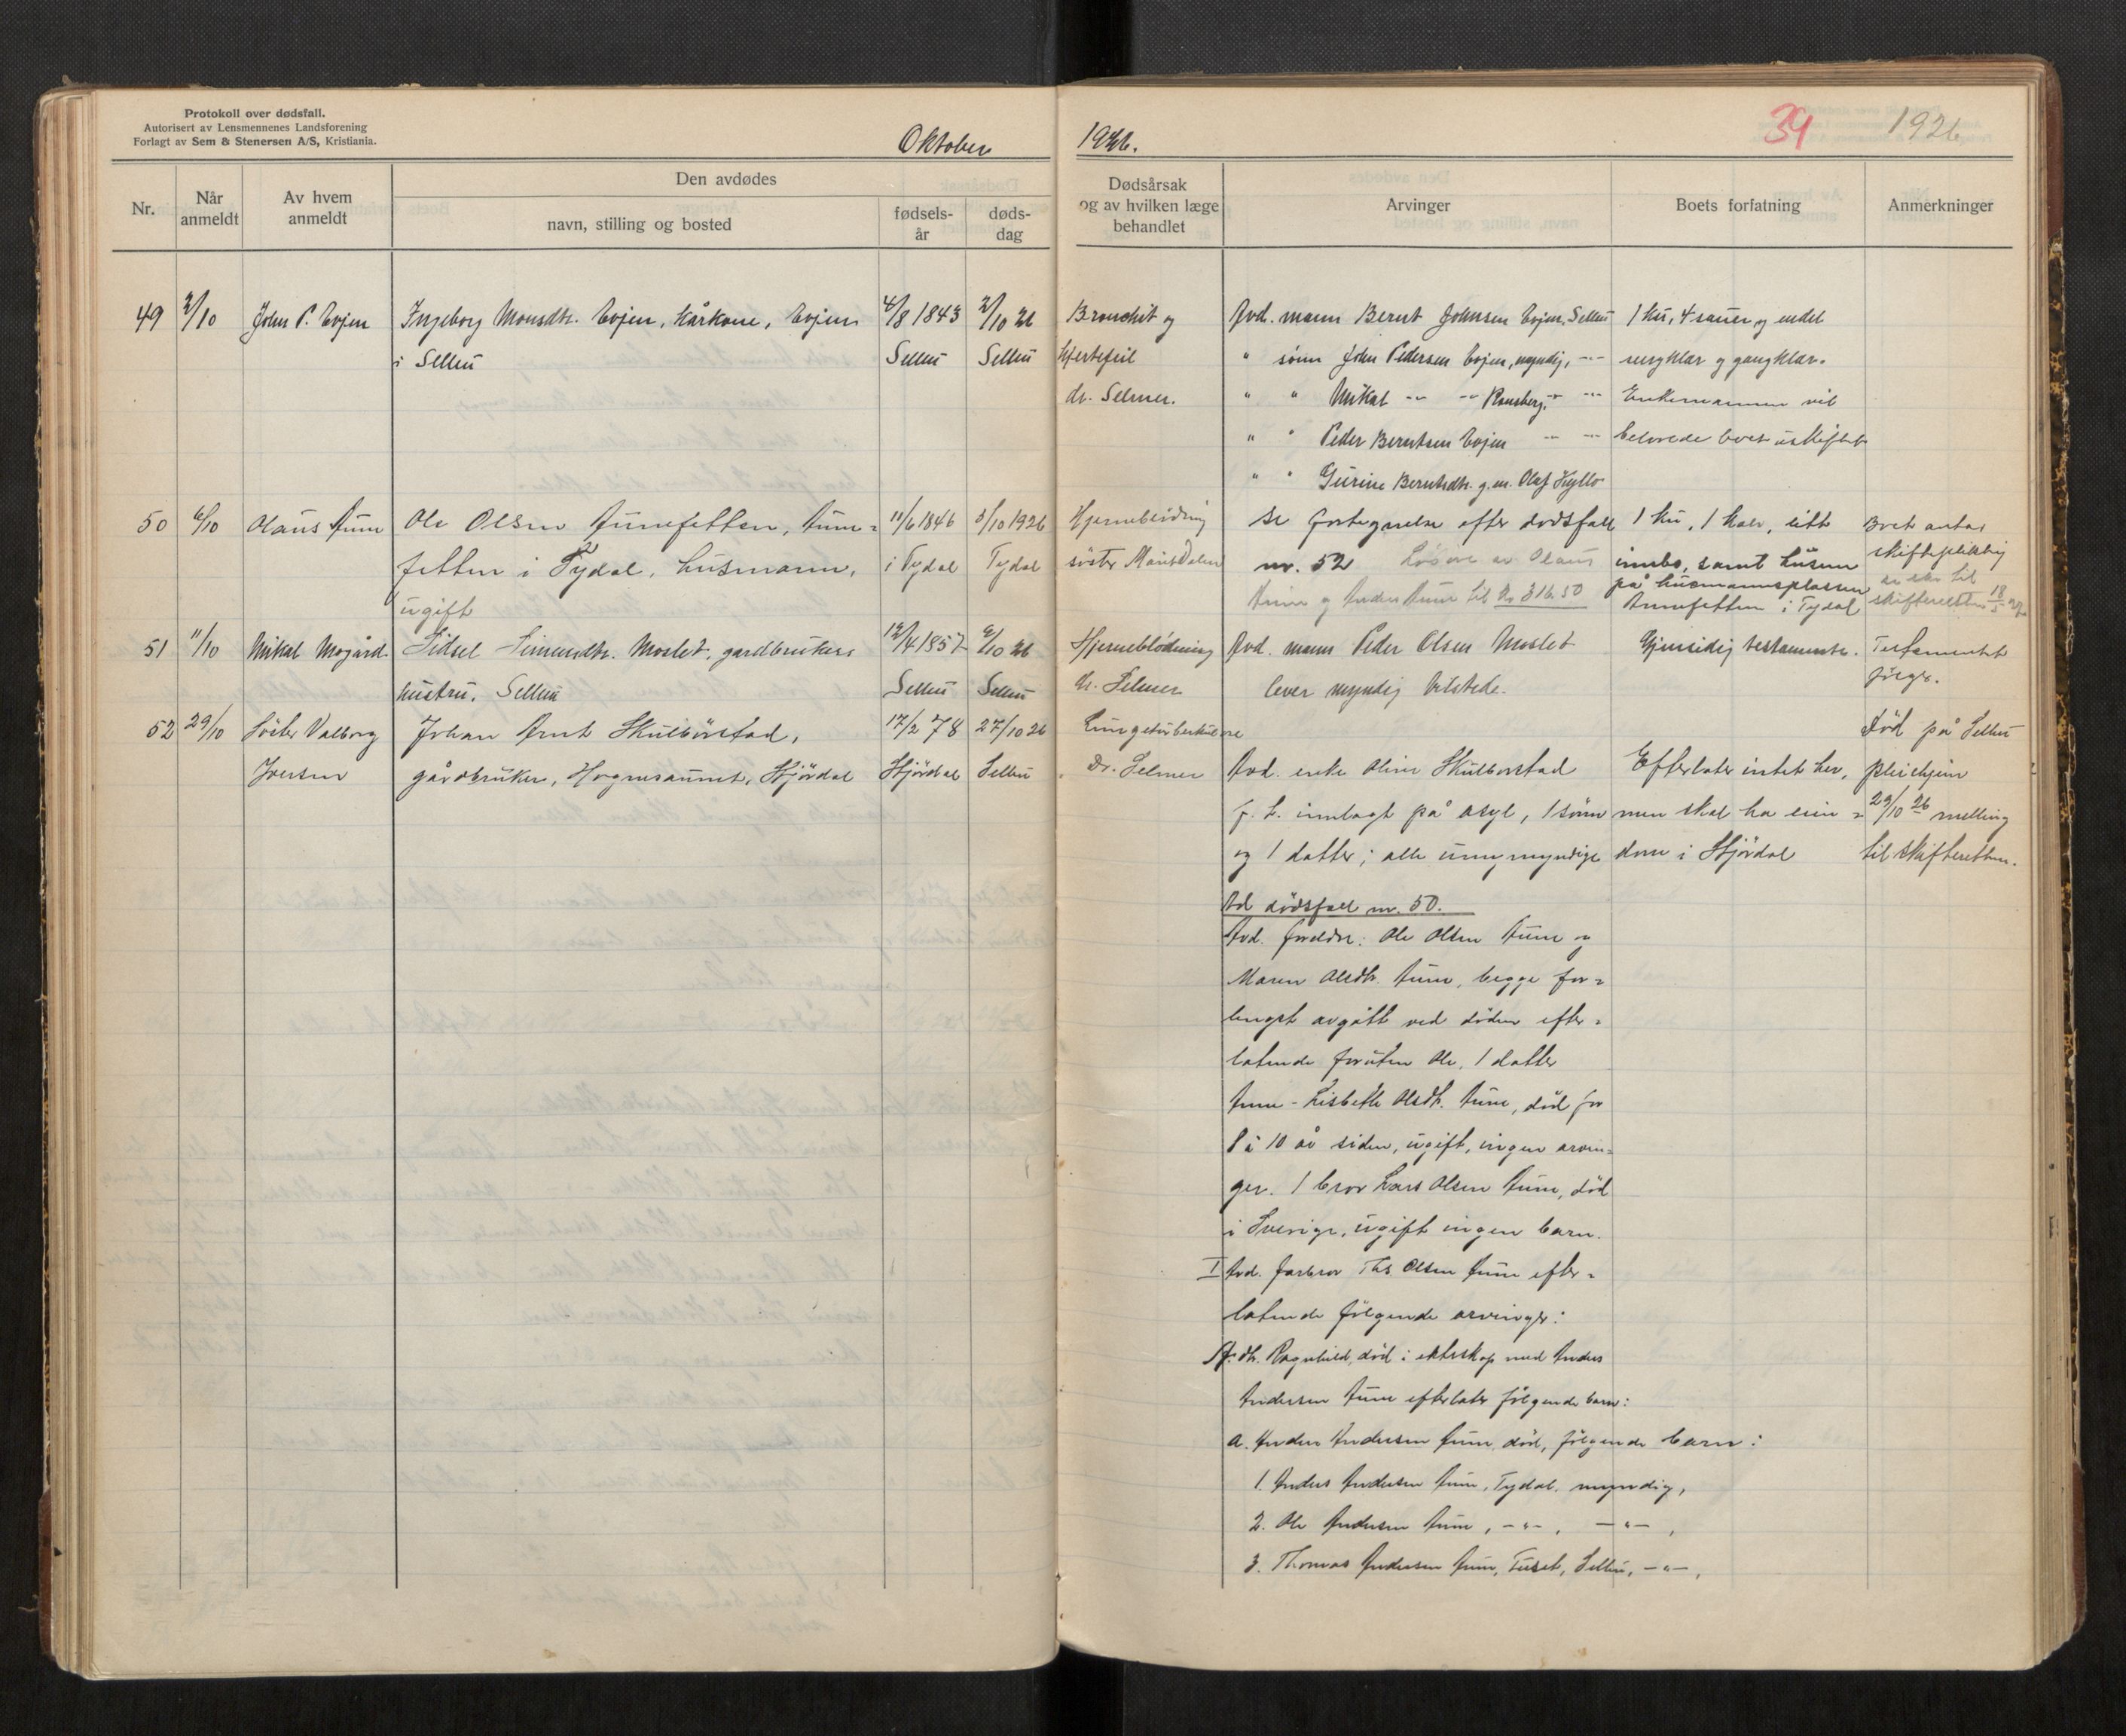 Protokoll over dødsfall.
Autorisert av Lensmennenes Landsforening
Forlagt av Sem & Stenersen A/S, Kristiania.
Oktober 1926.
34 1926
Nr.
Når anmeldt
Av hvem anmeldt
Den avdødes
navn, stilling og bosted
fødsels-år
døds-dag
Dødsårsak
og av hvilken læge
behandlet
Arvinger
Boets forfatning
Anmerkninger
49 2/10 John P. Evjen Ingeborg Monsdtr. Evjen, kårkone, Evjen 4/8 1843 2/10 26 Bronchit og Avd. mann Bernt Johnsen Evjen, Selbu 1 ku, 4 sauer og endel
i Selbu Selbu Selbu hjertefeil " sønn John Pedersen Evjen, myndig, -"- sengklær og gangklær.
dr. Selmer. " " Mikal -"- -"- Ramsberg, -"- -"- Enkemannen vil
" " Peder Berntsen Evjen -"- -"- beholde boet uskiftet
" " Gurine Berntsdtr. g.m. Olaf Kyllo
50 6/10 Olaus Aune Ole Olsen Aunefetten, Aune= 11/6 1846 5/10 1926 Hjerneblødning se fortegnelse efter dødsfall 1 ku, 1 kalv, litt Boet antas
fetten i Tydal, husmann, i Tydal Tydal søster Dalen nr. 52 Løsøre av Olaus innbo, samt husene skiftepliktig
ugift Aune og Anders Aune til Kr 316.50 på husmannsplassen
Aunefetten i Tydal skifteretten 18/5 27
51 11/10 Mikal Mogård Sidsel Simundtr. Moslet, gardbrukers 12/4 1857 9/10 26 Hjerneblødning Avd. mann Peder Olsen Moslet Gjensidig testamente. Testamentet
hustru, Selbu Selbu Selbu dr. Selmer lever myndig tilstede. følger.
52 29/10 Søster Valborg Johan Arnt Skulbørstad, 17/2 78 27/10 26 Lungetuberkulose Død på Selbu
Iversen gårdbruker, Hognesaunet, Stjørdal Stjørdal Selbu Dr. Selmer Avd. enke Oline Skulbørstad Efterlater intet her, pleiehjem
f. t. innlagt på asyl, 1 sønn men skal ha eien= 29/10 26 melling
og 1 datter; alle umyndige dom i Stjørdal til skifteretten.
Ad dødsfall nr. 50.
Avd. foreldre: Ole Olsen Aune og
Maren Olsdtr. Aune, begge for=
lengst avgått ved døden efter=
latende foruten Ole, 1 datter
Anne-Lisbeth Olsdtr. Aune, død for
8 à 10 år siden, ugift, ingen arvin=
ger. 1 bror Lars Olsen Aune, død
i Sverige, ugift ingen barn.
I Avd. farbror Ths. Olsen Aune efter=
latende følgende arvinger:
A. dtr. Ragnhild, død i ekteskap med Anders
Andersen Aune efterlater følgende barn:
a. Anders Andersen Aune, død, følgende barn:
1. Anders Andersen Aune, Tydal, myndig,
2. Ole Andersen Aune, -"-, -"-,
3. Thomas Andersen Aune, Tuset, Selbu, -"-,